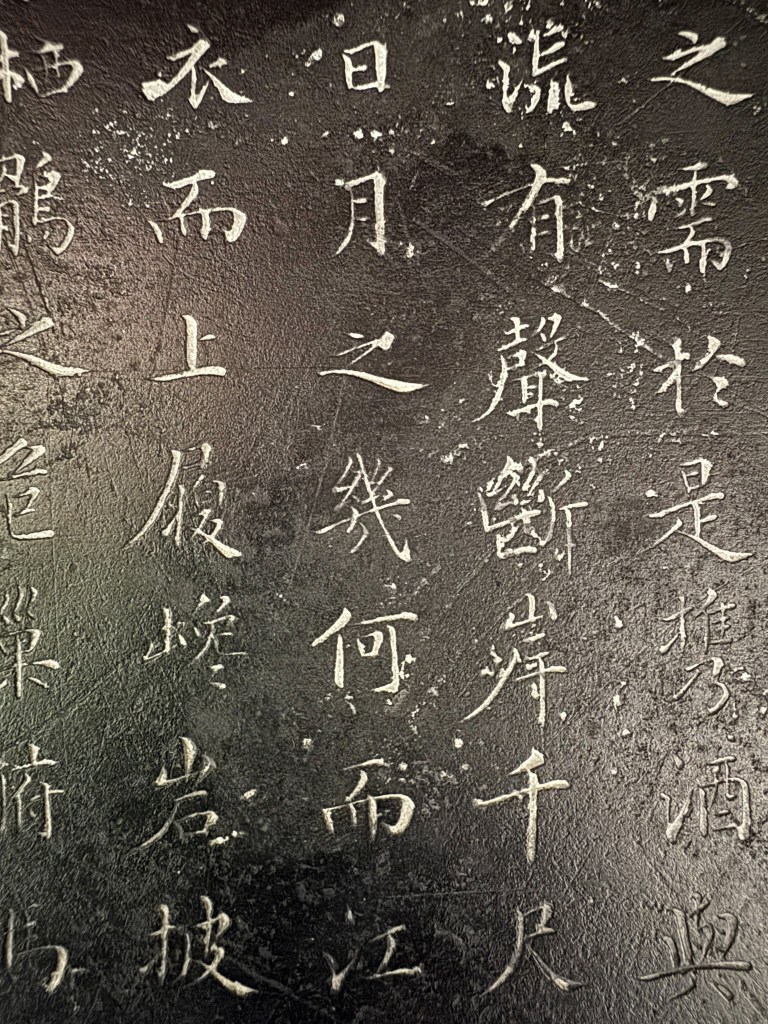 之需於是攜酒與
流有聲斷岸千尺
日月之幾何而江
衣而上履巉岩披
栖鶻之危巢俯馮